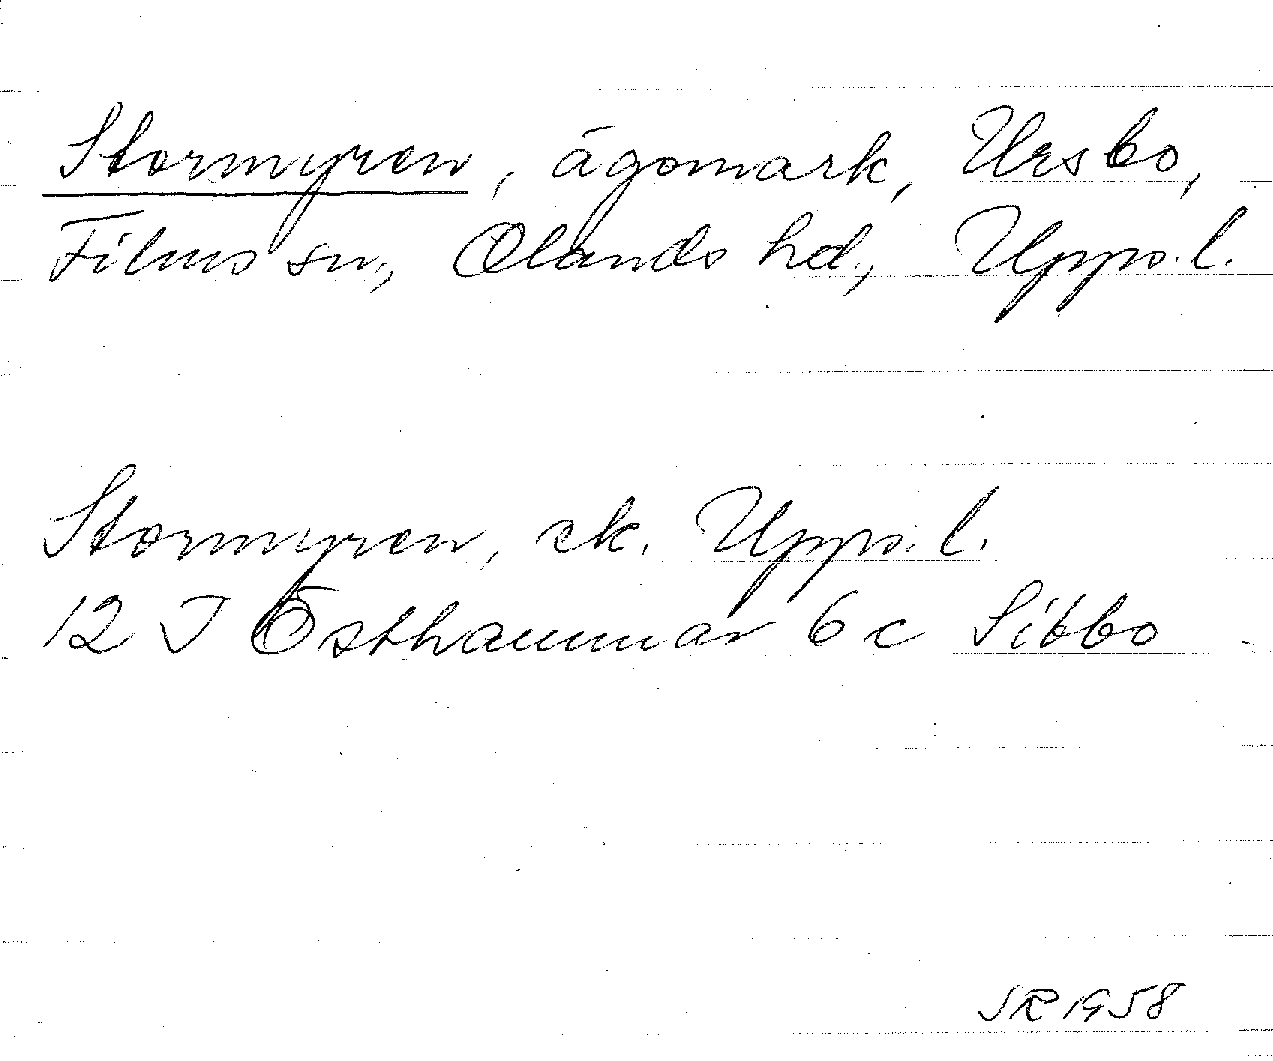 Stormyren, ägomark, Ursbo,
Films sn, Olands hd, Upps.l.
Stormyren, ek. Upps.l.
12 I Östhammar 6c Sibbo
SR 1958